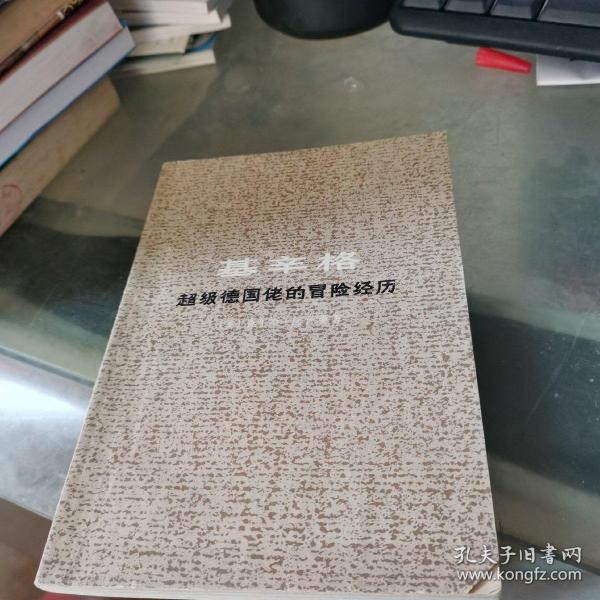 基辛格
超级德国佬的冒险经历
孔夫子旧書网
www.kongfz.com